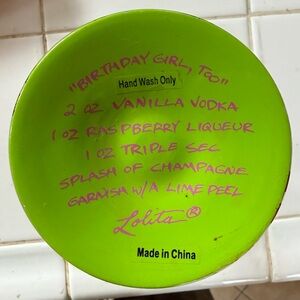 "BIRTHDAY GIRL, TOO"
Hand Wash Only
2 OZ VANILLA VODKA
1 OZ RASPBERRY LIQUEUR
1 OZ TRIPLE SEC
SPLASH OF CHAMPAGNE
GARNISH W/A LIME PEEL
Lolita®
Made in China